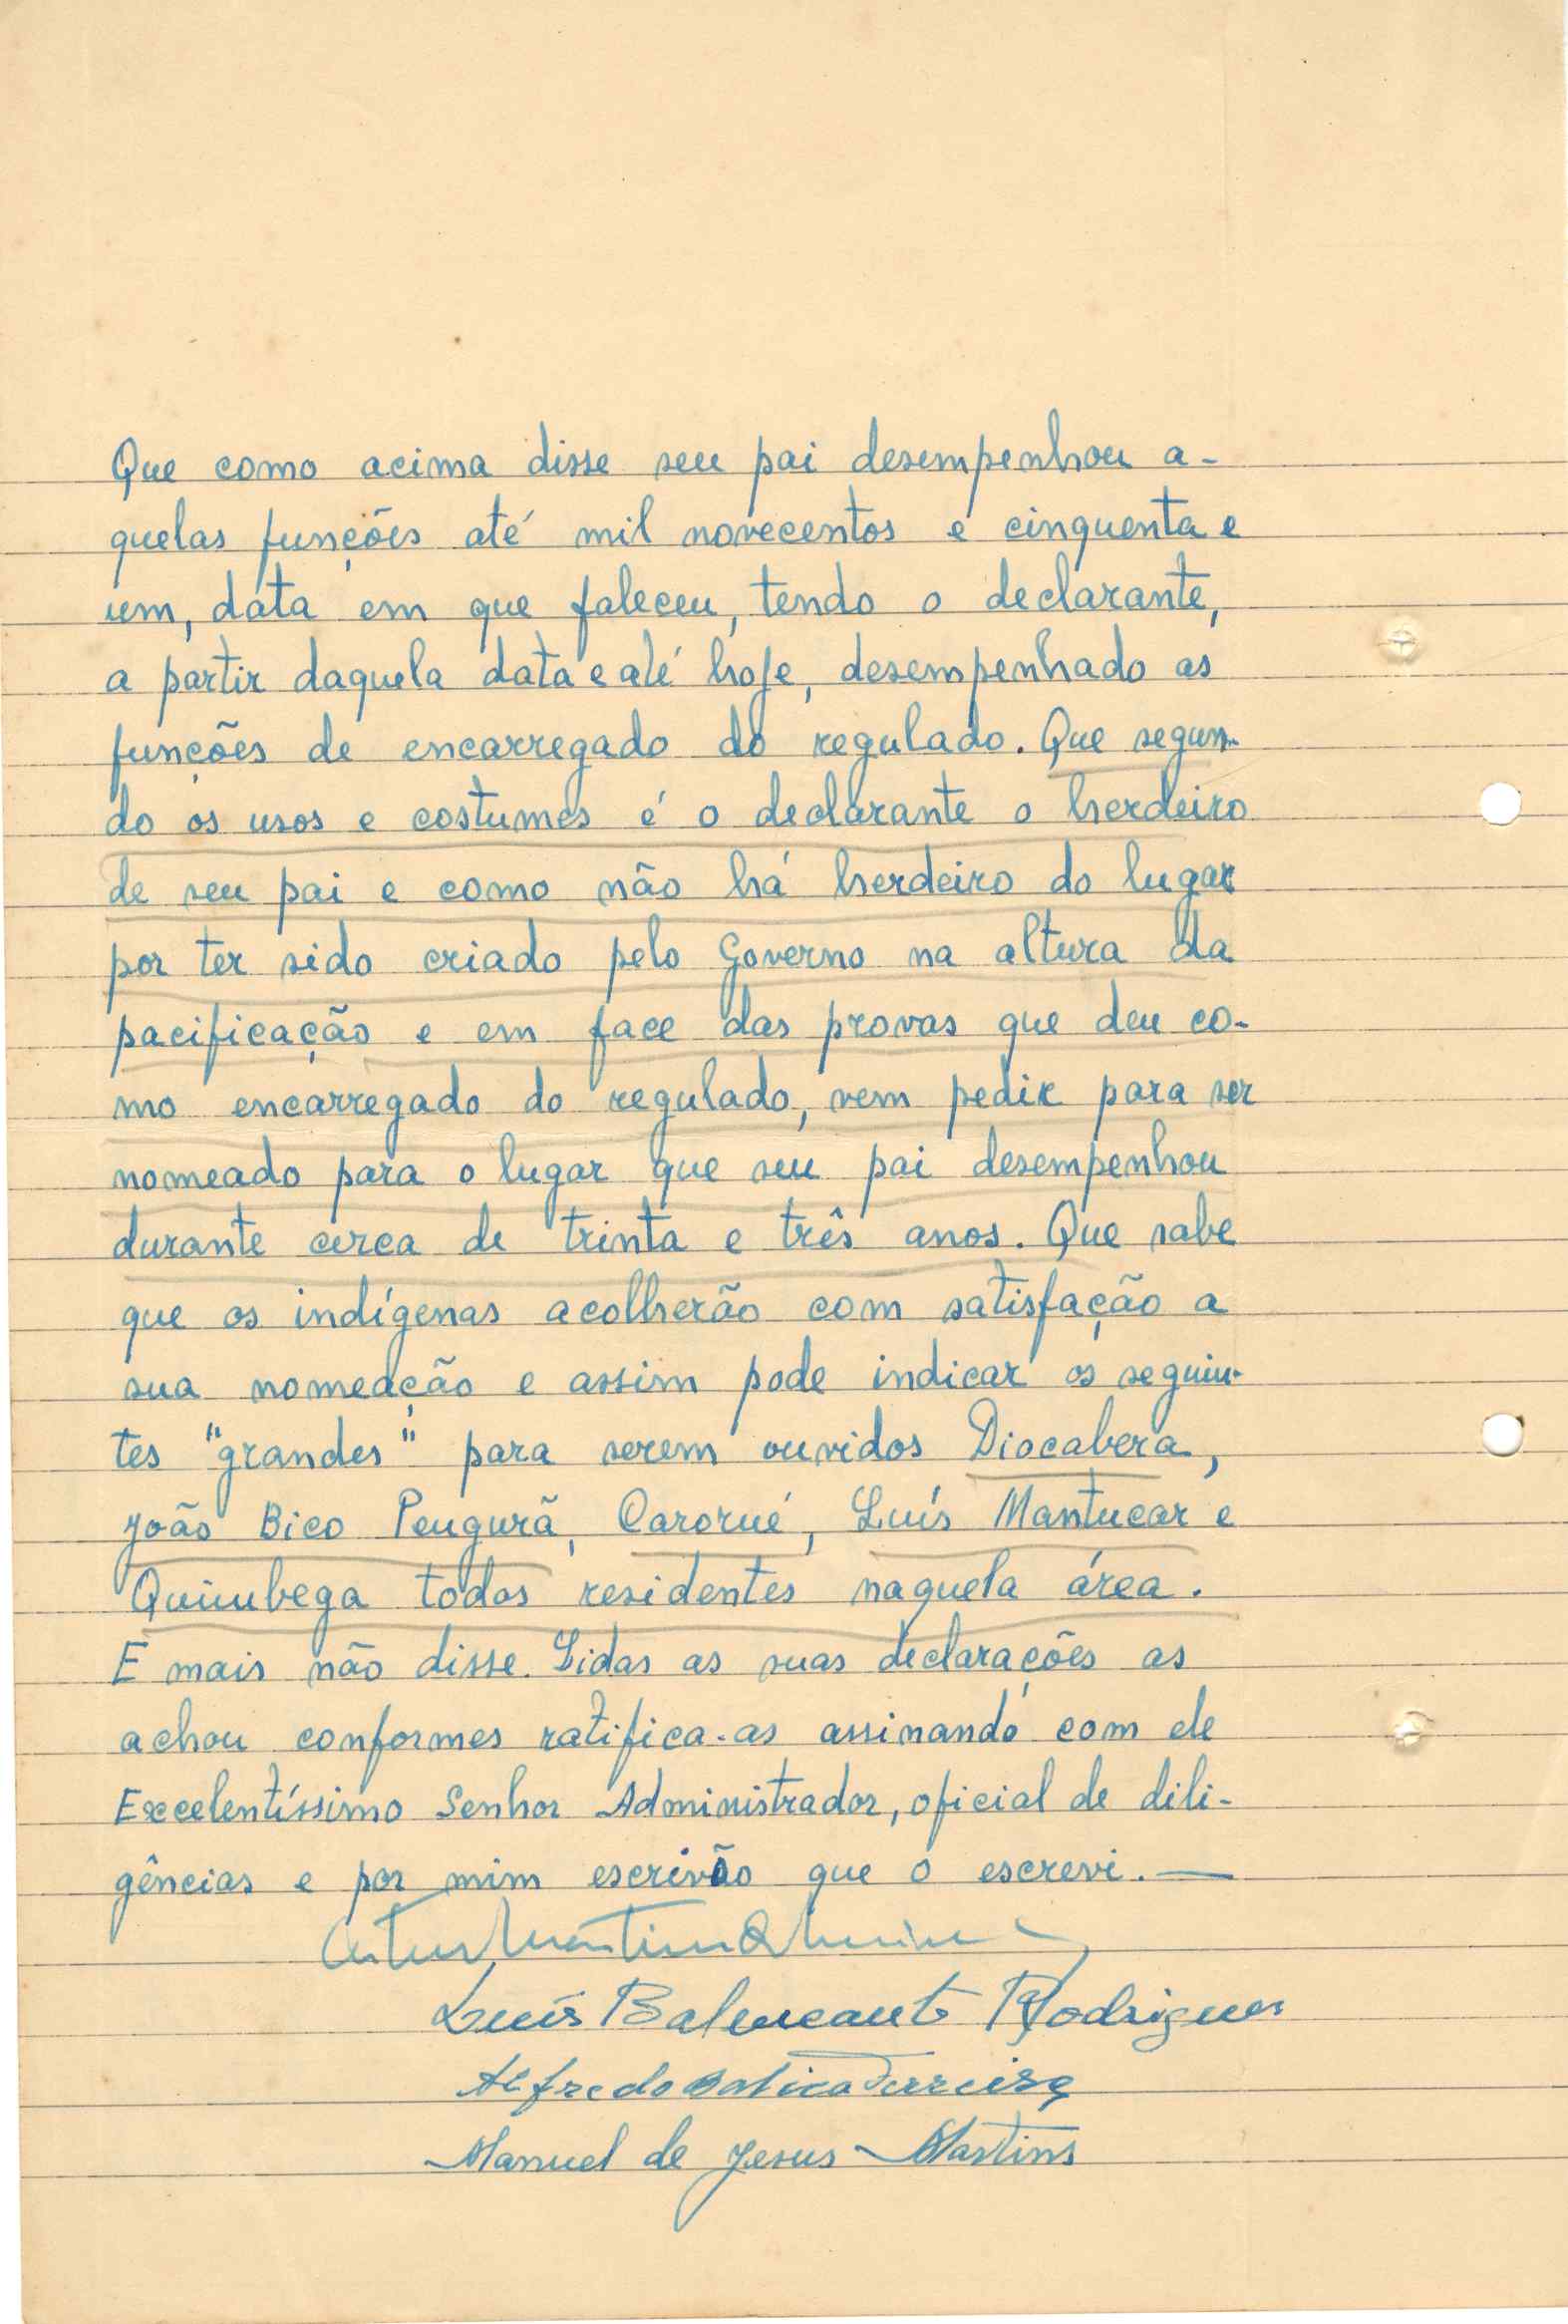 Que como acima disse seu pai desempenhou a-
quelas funções até mil novecentos e cinquenta e
um, data em que faleceu, tendo o declarante,
a partir daquela data e até hoje, desempenhado as
funções de encarregado do regulado. Que segun-
do os usos e costumes é o declarante o herdeiro
de seu pai e como não há herdeiro do lugar
por ter sido criado pelo Governo na altura da
pacificação e em face das provas que deu co-
mo encarregado do regulado, vem pedir para ser
nomeado para o lugar que seu pai desempenhou
durante cerca de trinta e três anos. Que sabe
que os indígenas acolherão com satisfação a
sua nomeação e assim pode indicar os seguin-
tes "grandes" para serem ouvidos Diocabera,
João Bico Pengurã, Carorué, Luís Mantucar e
Quiubega todos residentes naquela área.
E mais não disse. Lidas as suas declarações as
achou conformes ratifica-as assinando com ele
Excelentíssimo Senhor Administrador, oficial de dili-
gências e por mim escrivão que o escrevi. —
Artur Martins
Luís Rodrigues
Alfredo Ferreira
Manuel de Jesus Martins